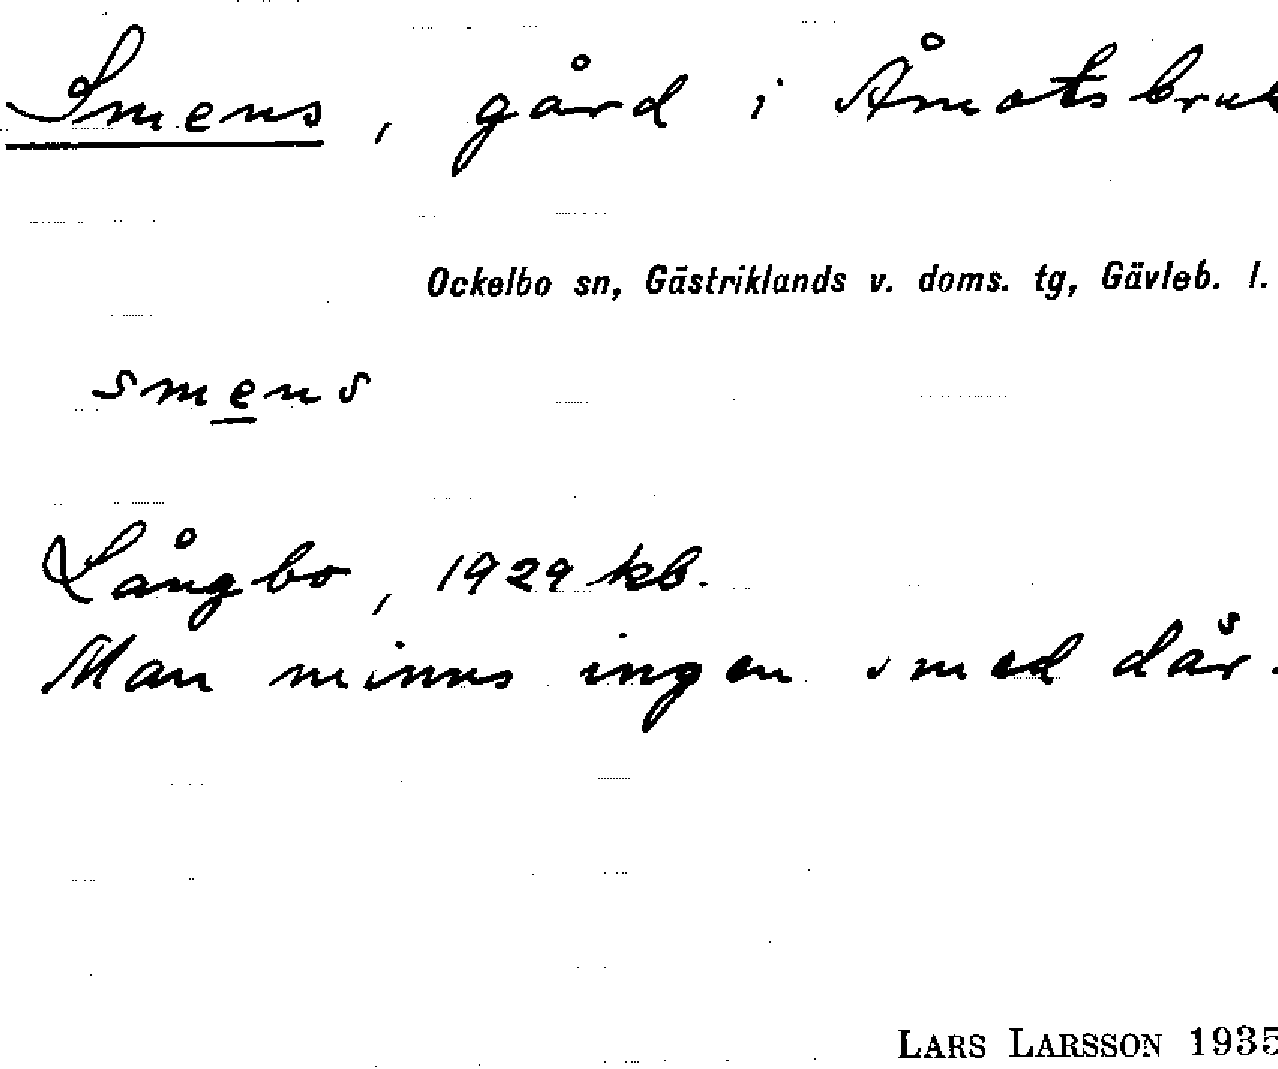 Smens, gård i Åmotsbruk
Ockelbo sn, Gästriklands v. doms. tg, Gävleb. l.
smens
Långbo, 1929 kb.
Man minns ingen smed där.
LARS LARSSON 1935